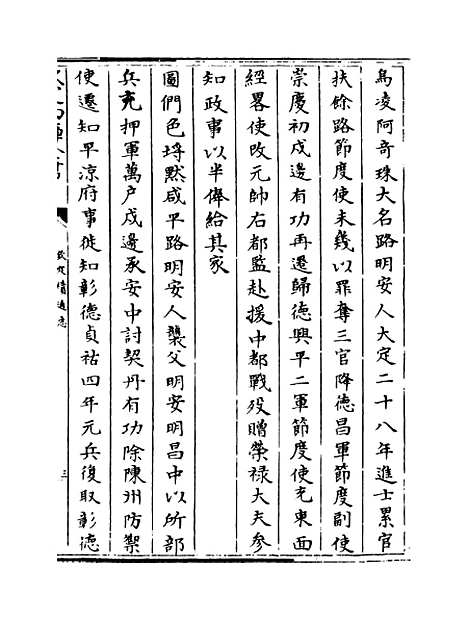 烏凌阿奇珠大名路明安人大定二十八年進士累官
扶餘路節度使未幾以罪奪三官降德昌軍節度副使
崇慶初戍邊有功再遷歸德興平二軍節度使充東面
經畧使改元帥右都監赴援中都戰歿贈榮祿大夫參
知政事以半俸給其家
圖們色埒默咸平路明安人襲父明安明昌中以所部
兵充押軍萬户戍邊承安中討契丹有功除陳州防禦
使遷知平涼府事徙知彰德貞祐四年元兵復取彰德
欽定續通志
三